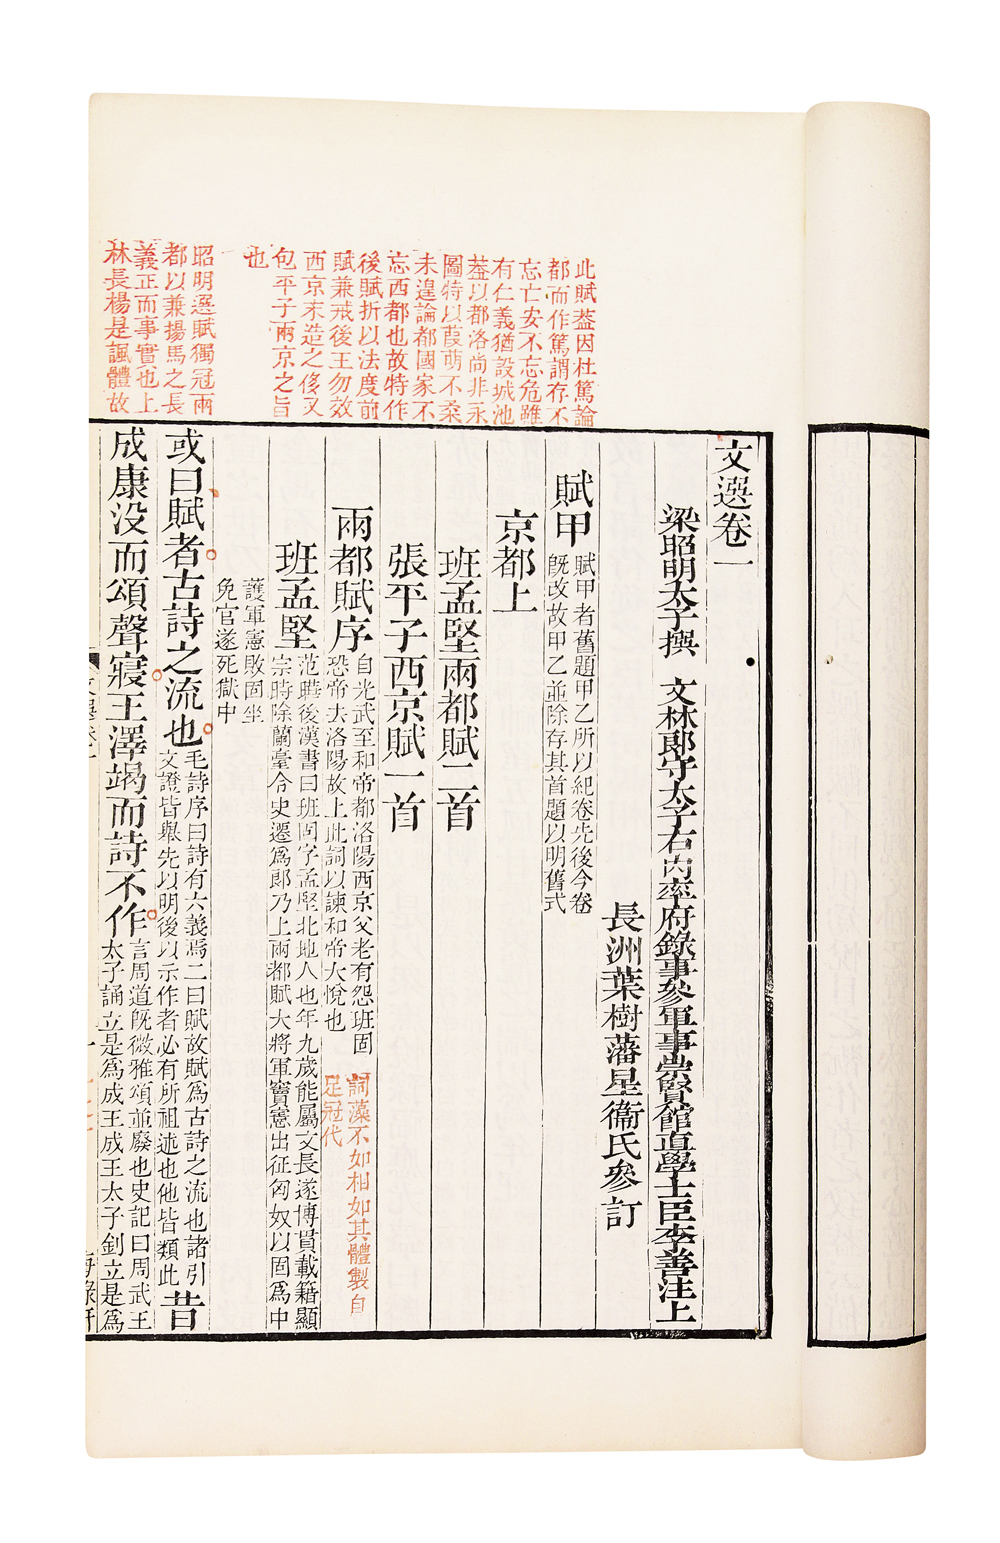 此賦葢因杜篤論
都而作篤謂存不
忘亡安不忘危雖
有仁義猶設城池
葢以都洛尚非永
圖特以葭萌不柔
未遑論都國家不
忘西都也故特作
後賦折以法度前
賦兼戒後王勿效
西京末造之侈又
包平子兩京之旨
也
昭明選賦獨冠兩
都以兼揚馬之長
義正而事實也上
林長楊是諷體故
文選卷一
梁昭明太子撰 文林郎守太子右内率府錄事參軍事崇賢館直學士臣李善注上
長洲葉樹藩星衞氏參訂
賦甲 賦甲者舊題甲乙所以紀卷先後今卷
旣改故甲乙並除存其首題以明舊式
京都上
班孟堅兩都賦二首
張平子西京賦一首
兩都賦序 自光武至和帝都洛陽西京父老有怨班固
恐帝去洛陽故上此詞以諫和帝大悅也
詞藻不如相如其體製自
足冠代
班孟堅 范曄後漢書曰班固字孟堅北地人也年九歲能屬文長遂博貫載籍顯
宗時除蘭臺令史遷爲郎乃上兩都賦大將軍竇憲出征匈奴以固爲中
護軍憲敗固坐
免官遂死獄中
或曰賦者古詩之流也 毛詩序曰詩有六義焉二曰賦故賦爲古詩之流也諸引
文證皆舉先以明後以示作者必有所祖述也他皆類此 昔
成康没而頌聲寢王澤竭而詩不作 言周道旣微雅頌並廢也史記曰周武王
太子誦立是爲成王成王太子釗立是爲